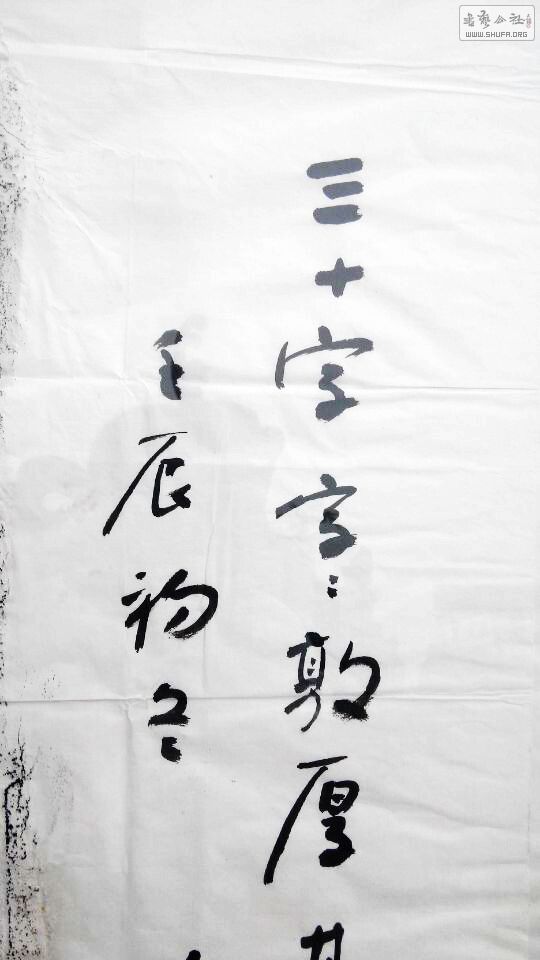 三十字字〻敦厚
壬辰初冬
书艺公社
WWW.SHUFA.ORG